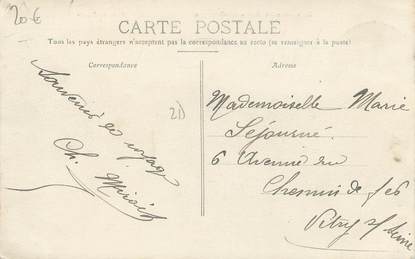 20 €
CARTE POSTALE
Tous les pays étrangers n'acceptent pas la correspondance au recto (se renseigner à la poste)
Correspondance
Souvenir de voyage
Ch.
20
Adresse
Mademoiselle Marie
Séjourné
6 Avenue du
Chemin de fer
Vitry s/ Seine